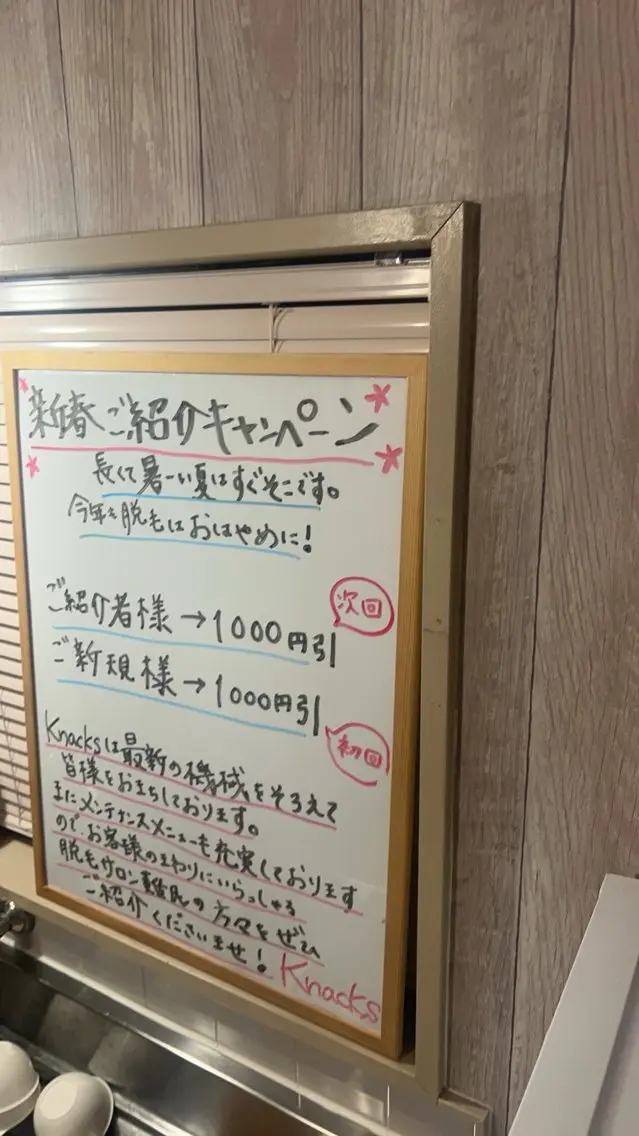 新春ご紹介キャンペーン
長くて暑ーい夏はすぐそこです。
今年も脱毛はおはやめに!
ご紹介者様→1000円引
次回
ご新規様→1000円引
初回
Knacksは最新の機械をそろえて
皆様をおまちしております。
またメンテナンスメニューも充実しております
ので、お客様のまわりにいらっしゃる
脱毛サロン難民の方々をぜひ
ご紹介くださいませ!
Knacks